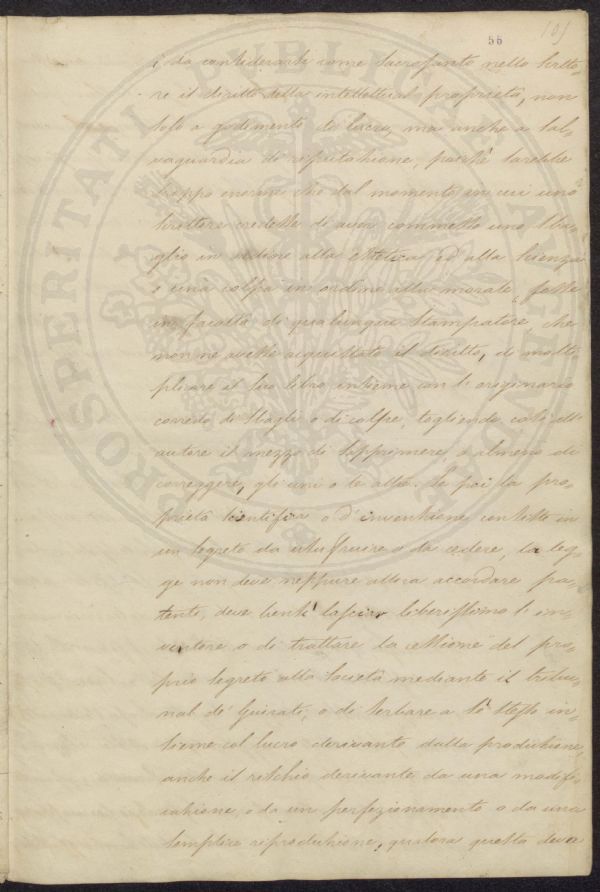 56 105
è da considerarsi come sacrosanto nello scritto-
re il diritto della intellettual proprietà, non
solo a godimento di lucro, ma anche a sal-
vaguardia di riputazione, poichè sarebbe
troppo enorme che dal momento in cui uno
scrittore credesse di aver commesso uno sba-
glio in ordine alla estetica, ed alla scienza
o una colpa in ordine alla morale, fosse
in facoltà di qualunque stampatore, che
non ne avesse acquistato il diritto, di molti-
plicare il suo libro insieme con l'originario
corredo di sbagli o di colpe, togliendo così all'
autore il mezzo di sopprimere, o almeno di
correggere, gli uni o le altre. Se poi la pro-
prietà scientifica o d'invenzione consiste in
un segreto da usufruire o da cedere, la leg-
ge non deve neppure allora accordare pa-
tente, deve bensì lasciar liberissimo l'in-
ventore o di trattare la cessione del pro-
prio segreto alla società mediante il tribu-
nal de' Giurati, o di serbare a sè stesso in-
sieme col lucro derivante dalla produzione,
anche il rischio derivante da una modifi-
cazione, o da un perfezionamento o da una
semplice riproduzione, qualora questa deva
PROSPERITATI PUBLICAE AUGENDAE